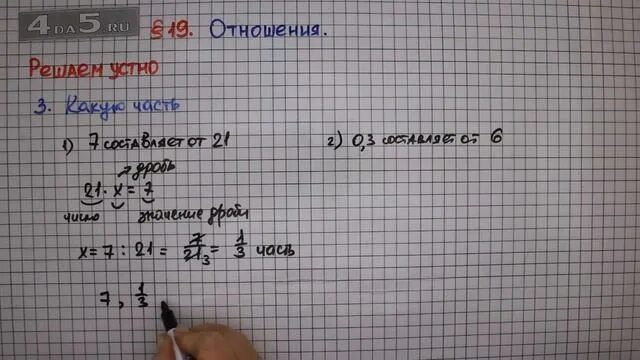 4DA5.RU
§ 19. Отношения.
Решаем устно
3. Какую часть
1) 7 составляет от 21
2) 0,3 составляет от 6
дробь
21 · x = 7
число значение дроби
x = 7 : 21 = 7/21 3 = 1/3 часть
7, 1/3